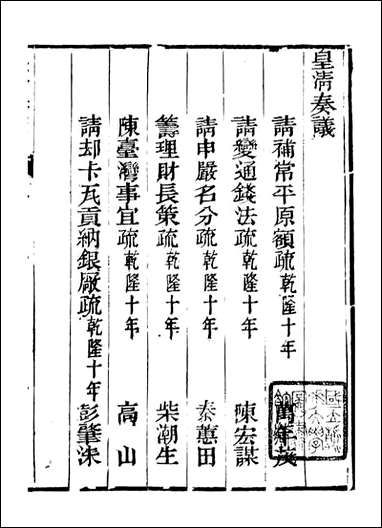 皇清奏議
請補常平原額疏乾隆十年 萬年茂
請變通錢法疏乾隆十年 陳宏謀
請申嚴名分疏乾隆十年 秦蕙田
籌理財長策疏乾隆十年 柴潮生
陳臺灣事宜疏乾隆十年 高山
請却卡瓦貢納銀厰疏乾隆十年 彭肇洙